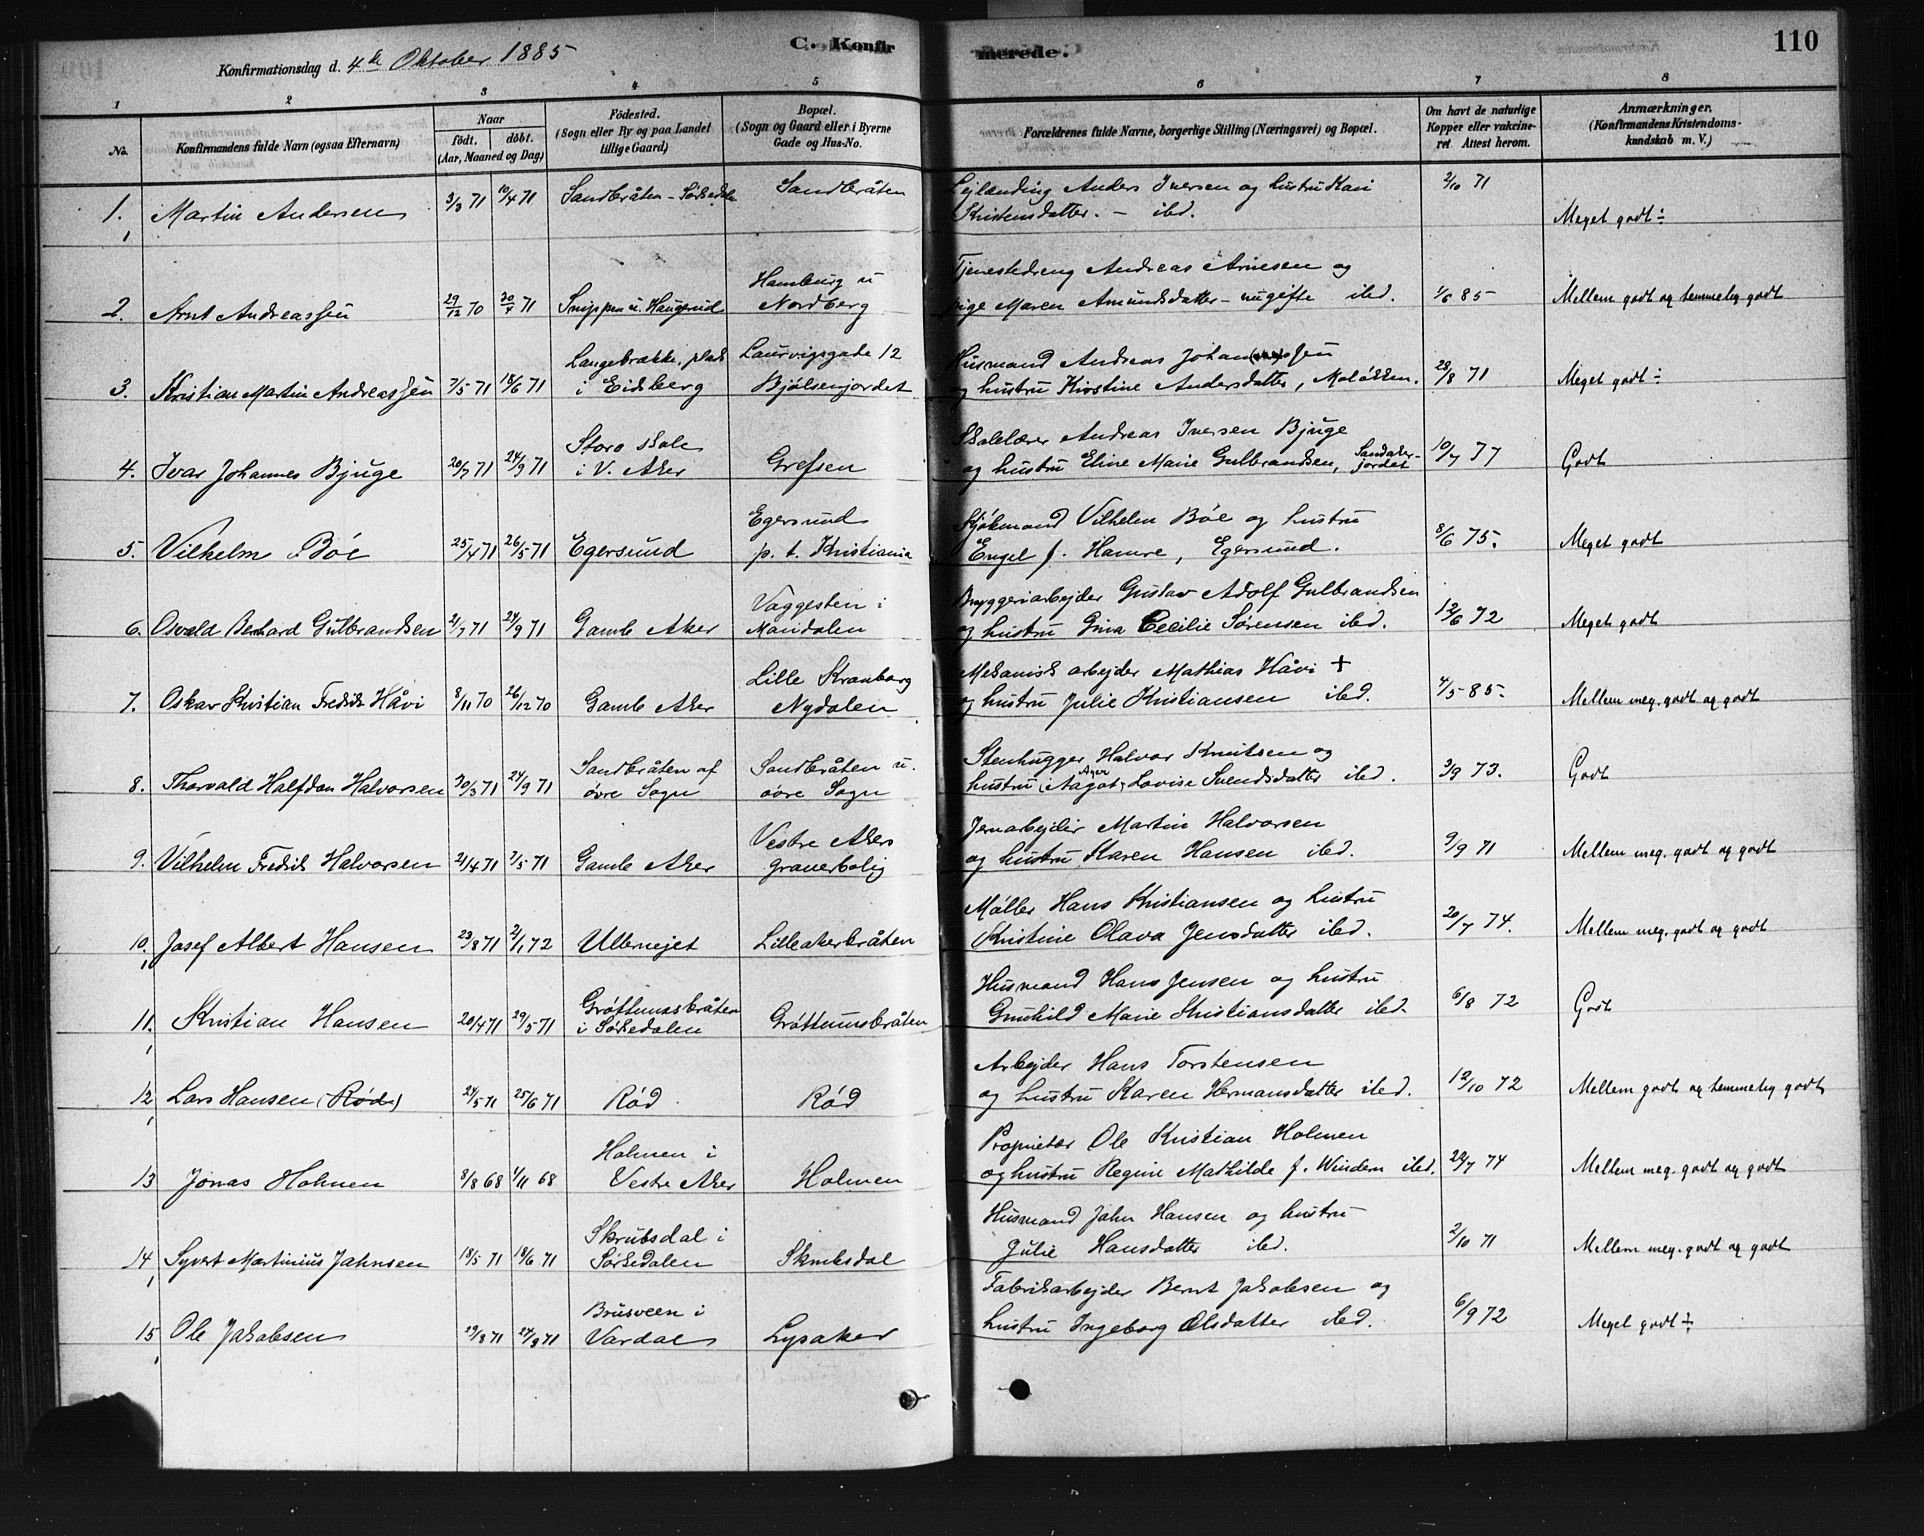 Konfirmationsdag d. 4de Oktober 1885
C. Konfirmerede.
110
1 2 3 4 5 6 7 8
No.
Konfirmandens fulde Navn (ogsaa Efternavn)
Naar født. døbt. (Aar, Maaned og Dag)
Fødested. (Sogn eller By og paa Landet tillige Gaard)
Bopæl. (Sogn og Gaard eller i Byerne Gade og Hus-No.
Forældrenes fulde Navne, borgerlige Stilling (Næringsvei) og Bopæl.
Om havt de naturlige Kopper eller vakcineret. Attest herom.
Anmærkninger. (Konfirmandens Kristendomskundskab m. V.)
1. Martin Andersen 3/3 71 10/4 71 Sandbråten - Sørkedalen Sandbråten Lejlænding Anders Iversen og hustru Kari
Kristensdatter. - ibd. 2/10 71 Meget godt ÷
2. Arnt Andreassen 29/12 70 30/4 71 Snippen u. Haugerud Hamburg u Nordberg Tjenestedreng Andreas Arnesen og
pige Maren Amundsdatter - ugifte ibd. 1/6 85 Mellem godt og temmelig godt
3. Kristian Martin Andreassen 7/5 71 18/6 71 Langebrække, plads i Eidsberg Laurvigsgade 12 Bjølsenjordet Husmand Andreas Johanssen
og hustru Kirstine Andersdatter, Moløkken. 28/8 71 Meget godt ÷
4. Ivar Johannes Bjuge 20/7 71 24/9 71 Storo skole i V. Aker Grefsen Skolelærer Andreas Iversen Bjuge
og hustru Eline Marie Gulbrandsen, Sandakerjordet 10/7 77 Godt
5. Vilhelm Bøe 25/4 71 26/5 71 Egersund Egersund p. t. Kristiania Sjökmand Vilhelm Böe og hustru
Engel f. Hamre, Egersund. 8/6 75. Meget godt
6. Osvald Berhard Gulbrandsen 21/7 71 24/9 71 Gamle Aker Vaggesten i Maridalen Bryggeriarbejder Gustav Adolf Gulbrandsen
og hustru Gina Cecilie Sørensen ibd. 12/6 72 Meget godt
7. Oskar Kristian Fredrik Håvi 8/11 70 26/12 70 Gamle Aker Lille Kranborg Nydalen Mekanisk arbejder Mathias Håvi +
og hustru Julie Kristiansen ibd. 4/5 85. Mellem meg. godt og godt
8. Thorvald Halfdan Halvorsen 30/3 71 24/9 71 Sandbråten af øvre Sogn Sandbråten u. øvre Sogn Stenhugger Halvor Knutsen og
hustru Aagot Lovise Svendsdatter ibd. 3/9 73. Godt
9. Vilhelm Fredrik Halvorsen 21/4 71 7/5 71 Gamle Aker Vestre Akers graverbolig Jernarbejder Martin Halvorsen
og hustru Karen Hansen ibd. 9/9 71 Mellem meg. godt og godt
10. Josef Albert Hansen 23/8 71 2/1 72 Ullernejet Lilleakerbråten Møller Hans Kristiansen og hustru
Kristine Olava Jensdatter ibd. 20/7 74. Mellem meg. godt og godt
11. Kristian Hansen 20/4 71 29/5 71 Grøttumsbråten i Sørkedalen Grøttumsbråten Husmand Hans Jensen og hustru
Gunhild Marie Kristiansdatter ibd. 6/8 72 Godt
12 Lars Hansen (Rød) 24/5 71 25/6 71 Rød Rød Arbejder Hans Torstensen
og hustru Karen Hermansdatter ibd. 12/10 72 Mellem godt og temmelig godt
13 Jonas Holmen 8/8 68 1/11 68 Holmen i Vestre Aker Holmen Proprietær Ole Kristian Holmen
og hustru Regine Mathilde f. Windern ibd. 29/7 74 Mellem meg. godt og godt
14 Syvert Martinius Jahnsen 18/5 71 18/6 71 Skrubsdal i Sørkedalen Skrubsdal Husmand Jahn Hansen og hustru
Julie Hansdatter ibd. 2/10 71 Mellem meg. godt og godt
15 Ole Jakobsen 29/8 71 24/9 71 Brusveen i Vardal Lysaker Fabrikarbejder Bernt Jakobsen og
hustru Ingeborg Olsdatter ibd. 6/9 72 Meget godt ÷